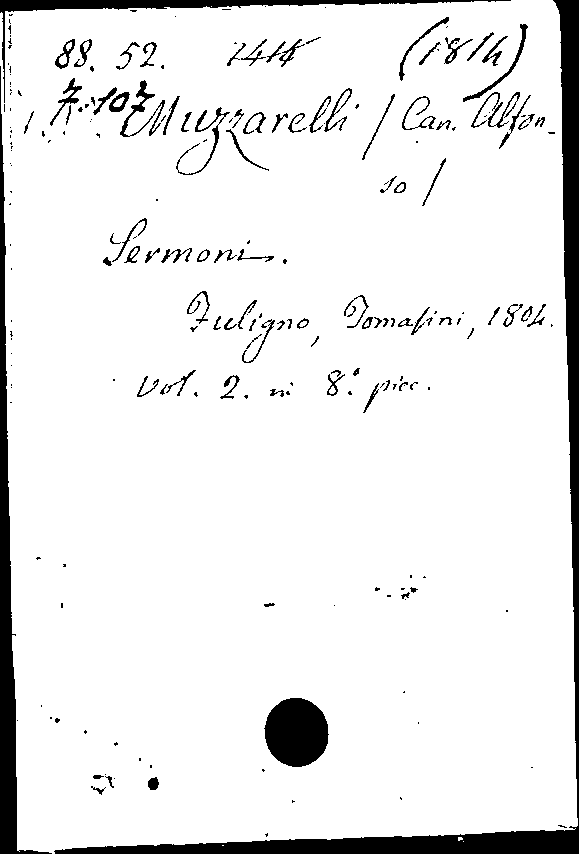 88. 52. 1414 (1814)
7.107 Muzzarelli / Can. Alfon-
so /
Sermoni.
Fuligno, Tomasini, 1804.
Vol. 2. in 8.° picc.